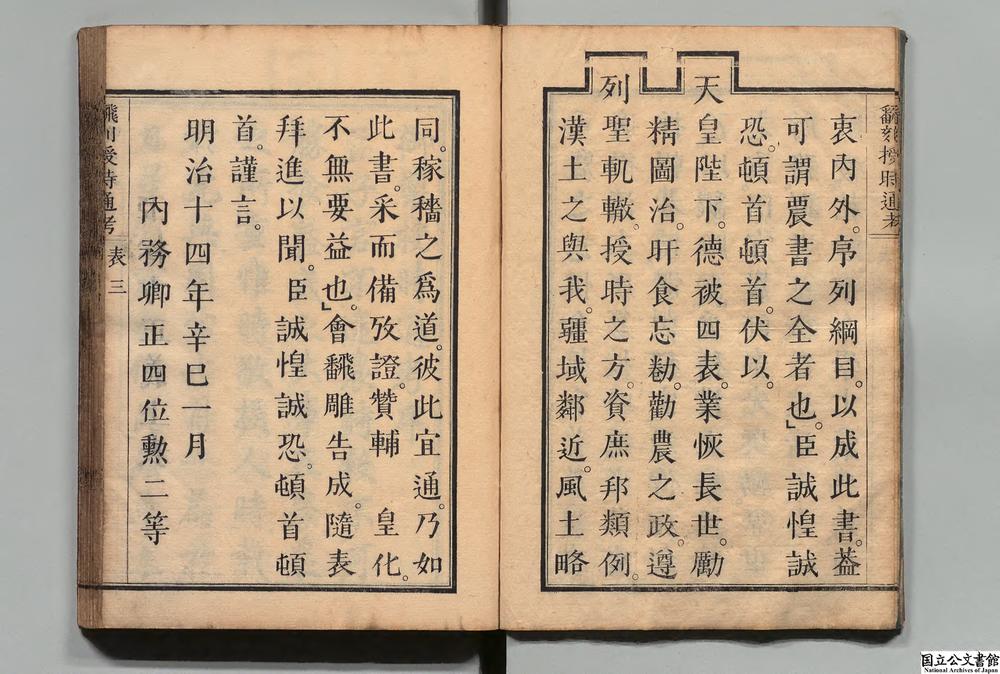 衷內外。序列綱目。以成此書。葢
可謂農書之全者也。」臣誠惶誠
恐。頓首頓首。伏以。
天皇陛下。德被四表。業恢長世。勵
精圖治。旰食忘勌。勸農之政。遵
列聖軌轍。授時之方。資庶邦類例。
漢土之與我。疆域鄰近。風土略
同。稼穡之爲道。彼此宜通。乃如
此書。采而備攷證。贊輔 皇化。
不無要益也。」會飜雕告成。隨表
拜進以聞。臣誠惶誠恐。頓首頓
首。謹言。
明治十四年辛巳一月
內務卿正四位勲二等
飜刻授時通考 表 三
国立公文書館
National Archives of Japan